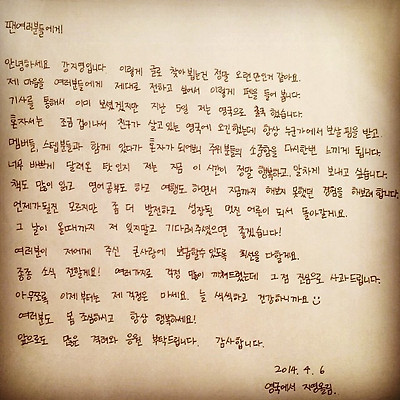 팬여러분들에게
안녕하세요 강지영입니다. 이렇게 글로 찾아 뵙는건 정말 오랜만인거 같아요.
제 마음을 여러분들에게 제대로 전하고 싶어서 이렇게 펜을 들어 봅니다.
기사를 통해서 이미 보셨겠지만 지난 5일 저는 영국으로 출국 했습니다.
혼자서는 조금 겁이나서 친구가 살고있는 영국에 오긴했는데 항상 누군가에서 보살 핌을 받고,
멤버들, 스텝분들과 함께 있다가 혼자가 되어보니 주위분들의 소중함을 다시한번 느끼게 됩니다.
너무 바쁘게 달려온 탓 인지 저는 지금 이 시간이 정말 행복하고, 알차게 보내고 싶습니다.
책도 많이 읽고 영어공부도 하고 여행도 하면서 지금까지 해보지 못했던 경험을 해보려 합니다.
언제가될진 모르지만 좀 더 발전하고 성장된 멋진 어른이 되서 돌아갈게요.
그 날이 올때까지 저 잊지말고 기다려주셨으면 좋겠습니다!
여러분이 저에게 주신 큰사랑에 보답할수 있도록 최선을 다할게요.
종종 소식 전할게요! 여러가지로 걱정 많이 끼쳐드렸는데 그점 진심으로 사과드립니다.
아무쪼록 이제부터는 제 걱정은 마세요. 늘 씩씩하고 건강하니까요 ☺
여러분도 몸 조심하시고 항상 행복하세요!
앞으로도 많은 격려와 응원 부탁드립니다. 감사합니다.
2014. 4. 6
영국에서 지영올림.